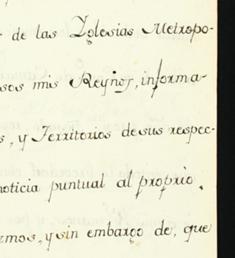 de las Yglesias Metropo-
sos mis Reynos, informa-
s, y Territorios de sus respec-
noticia puntual al proprio
rmos, y sin embargo de, que